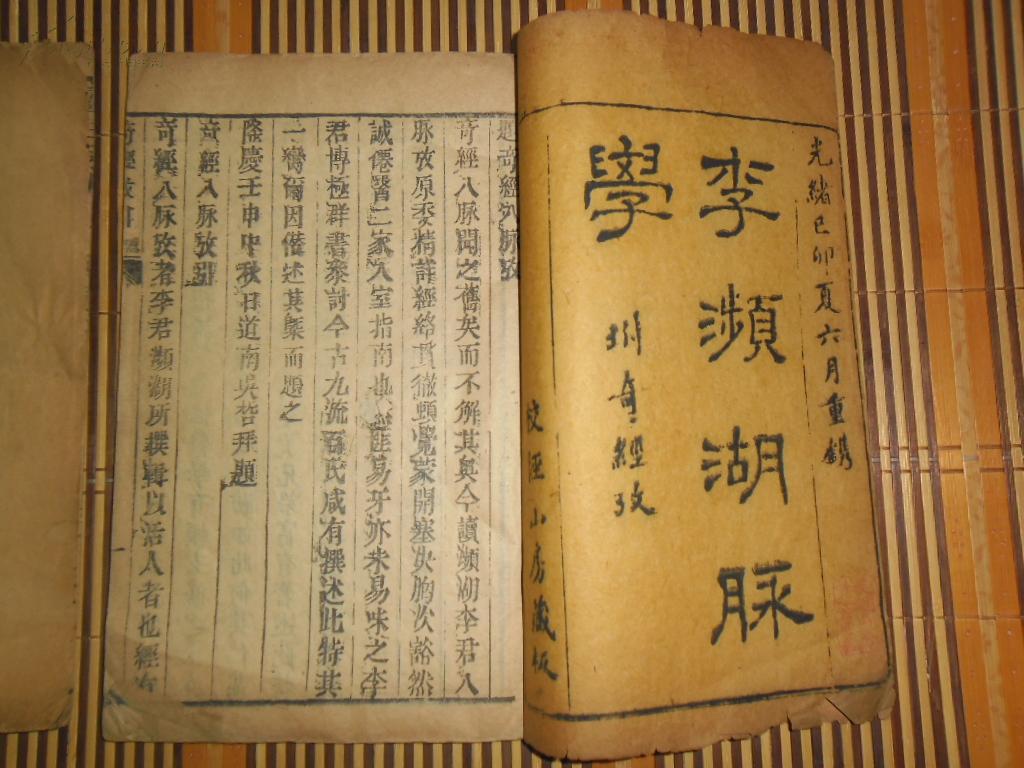 光緒己卯夏六月重鐫
李瀕湖脉
學
坿奇經攷
校經山房藏板
題奇經八脉攷
奇經八脉聞之舊矣而不解其奧今讀瀕湖李君八
脉攷原委精詳經絡貫徹頓覺蒙開塞決胸次豁然
誠僊醫二家入室指南也匪易牙亦未易味之李
君博極群書參討今古九流百氏咸有撰述此特其
一臠爾因僭述其槩而題之
隆慶壬申中秋日道南吳哲拜題
奇經八脉攷引
奇經八脉攷者李君瀕湖所撰輯以活人者也經有
奇經攷引